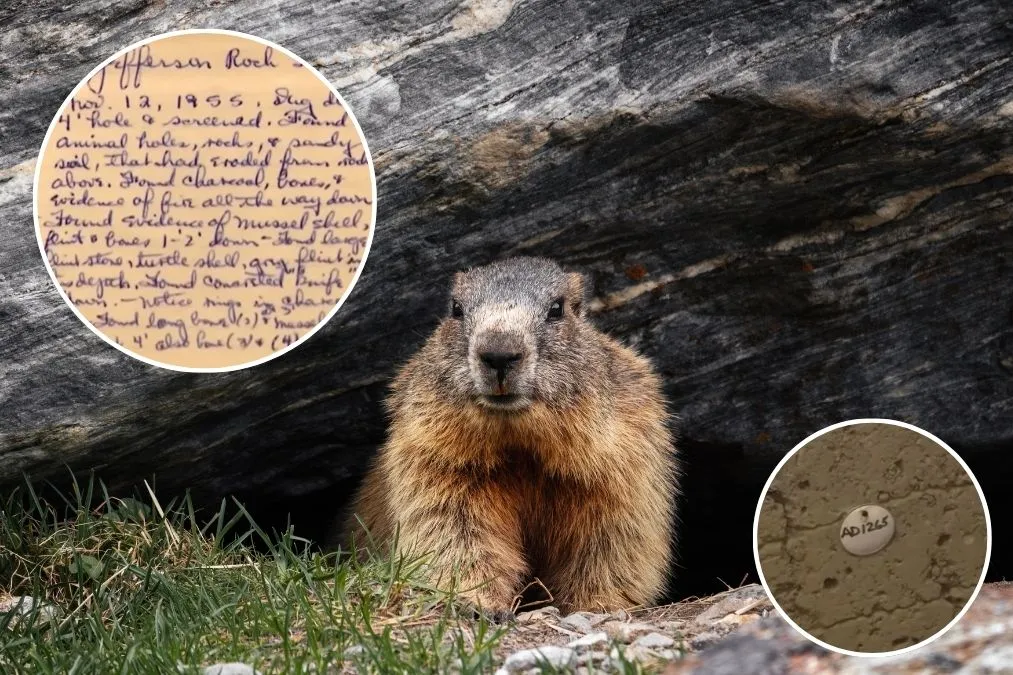 Jefferson Rock
Nov. 12, 1955. Dug
4' hole & screened. Found
animal holes, rocks, & sandy
soil, that had eroded from
above. Found charcoal, bones, &
evidence of fire all the way down
Found evidence of mussel shell,
flint & bones 1-2' down - Found large
flint stone, turtle shell, gray flint
depth. Found Knife
- notice rings in
Found long bone (2) & mussel
4' also bone (3) & (4)
AD1265